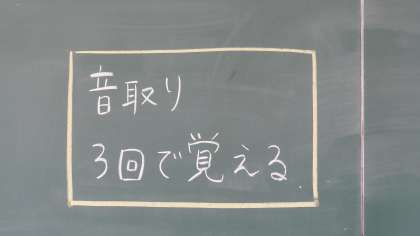 音取り
3回で覚える.